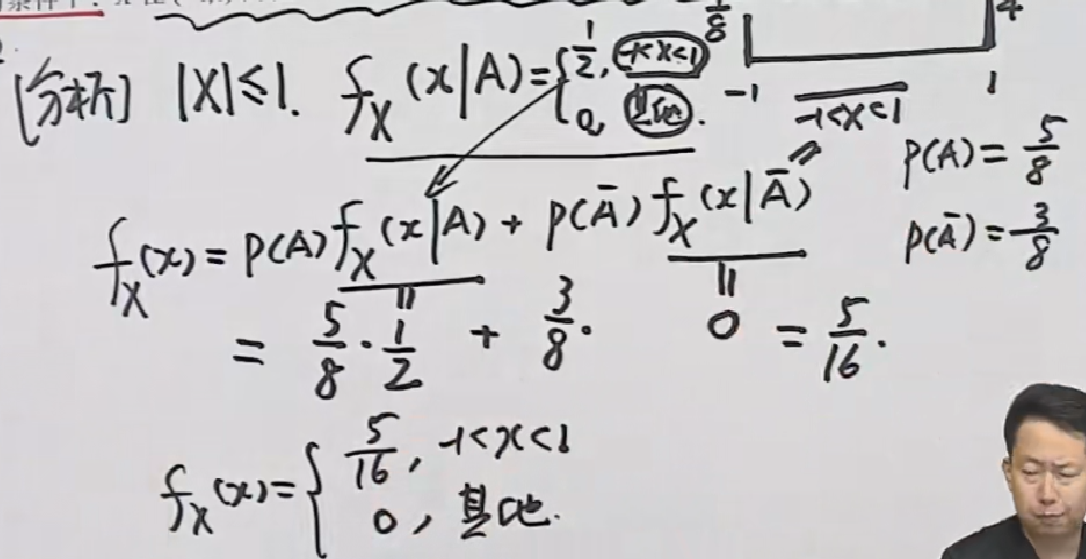 1/8 4
[分析] |X|≤1. f_X(x|A)={1/2, -1<x<1
0, 其他.
-1 -1<x<1 1
P(A)=5/8
f_X(x)=P(A)f_X(x|A)+P(Ā)f_X(x|Ā)
P(Ā)=3/8
= 5/8·1/2 + 3/8· 0 = 5/16.
f_X(x)={5/16, -1<x<1
0, 其他.